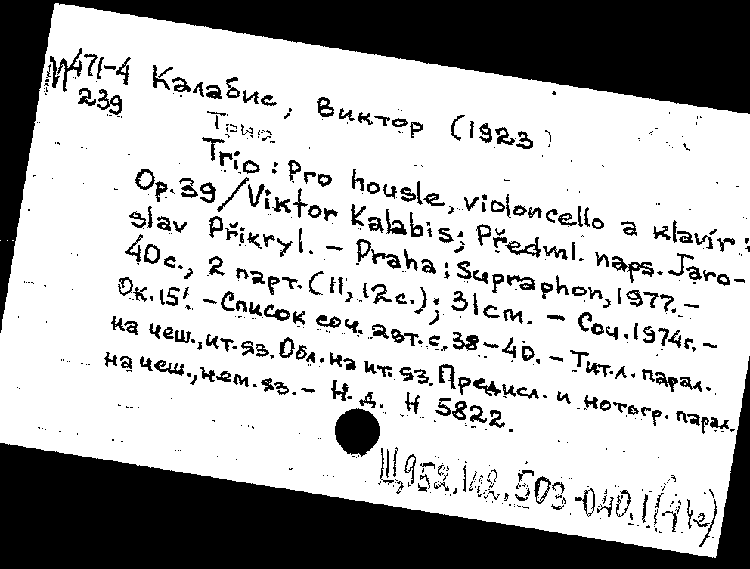 М 471-4
239
Калабис, Виктор (1923)
Трио
Trio : Pro housle, violoncello a klavír :
Op. 39 / Viktor Kalabis; Předml. naps. Jaro-
slav Přikryl. – Praha : Supraphon, 1977. –
40 с., 2 парт. (11, 12 с.); 31 cm. – Соч. 1974 г. –
Ок. 15'. – Список соч. авт. с. 38–40. – Тит. л. парал.
на чеш., ит. яз. Обл. на ит. яз. Предисл. и нотогр. парал.
на чеш., нем. яз. – Н. д. H 5822.
Щ952.142.503-040.1(4Че)